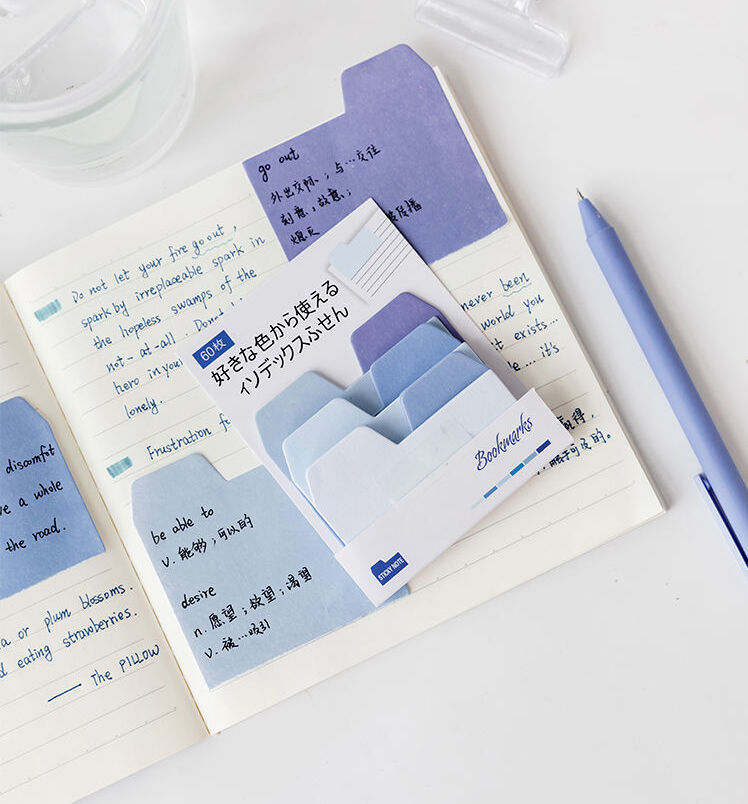 discomfot
ve a whole
the road.
a or plum blossoms.
d eating strawberries.
—— The PILLOW
Do not let your fire go out,
spark by irreplaceable spark in
the hopeless swamps of the
not-at-all. Do not
hero in you
lonely.
Frustration
be able to
v. 能够;可以的
desire
n. 愿望;欲望;渴望
v. 被…吸引
go out
外出交际、;与…交往
刻意,故意、;
熄灭
播
60枚
好きな色から使える
ィソデックスふせん
Bookmarks
STICKY NOTE
never been
world you
it exists...
... it's